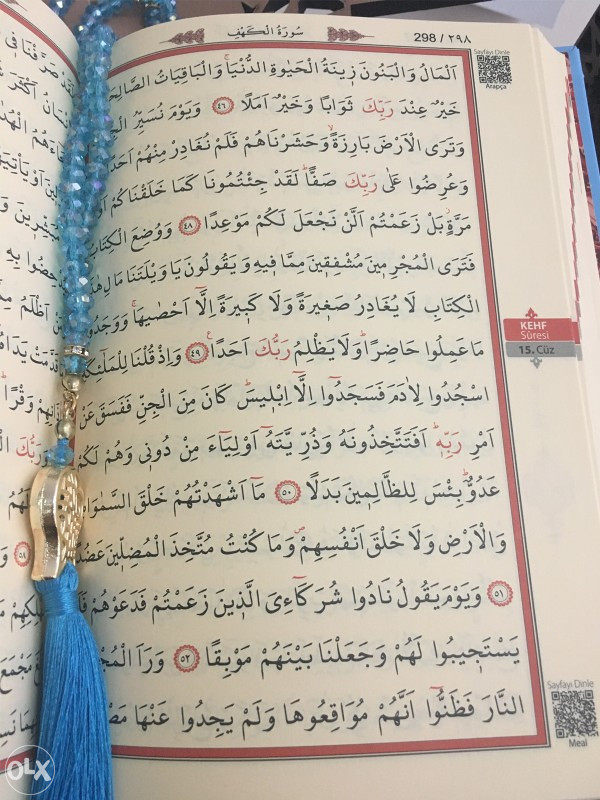 سُورَةُ الْكَهْفِ
298 / ٢٩٨
Sayfayı Dinle
Arapça
اَلْمَالُ وَالْبَنُونَ زِينَةُ الْحَيٰوةِ الدُّنْيَاۚ وَالْبَاقِيَاتُ
خَيْرٌ عِنْدَ رَبِّكَ ثَوَابًا وَخَيْرٌ اَمَلًا ٤٦ وَيَوْمَ نُسَيِّرُ
وَتَرَى الْاَرْضَ بَارِزَةًۙ وَحَشَرْنَاهُمْ فَلَمْ نُغَادِرْ مِنْهُمْ
وَعُرِضُوا عَلٰى رَبِّكَ صَفًّاۜ لَقَدْ جِئْتُمُونَا كَمَا خَلَقْنَاكُمْ
مَرَّةٍۘ بَلْ زَعَمْتُمْ اَلَّنْ نَجْعَلَ لَكُمْ مَوْعِدًا ٤٨ وَوُضِعَ الْكِتَابُ
فَتَرَى الْمُجْرِمِينَ مُشْفِقِينَ مِمَّا فِيهِ وَيَقُولُونَ يَا وَيْلَتَنَا
الْكِتَابِ لَا يُغَادِرُ صَغِيرَةً وَلَا كَبِيرَةً اِلَّٓا اَحْصٰيهَاۚ
مَا عَمِلُوا حَاضِرًاۜ وَلَا يَظْلِمُ رَبُّكَ اَحَدًا۟ ٤٩ وَاِذْ قُلْنَا
اسْجُدُوا لِاٰدَمَ فَسَجَدُٓوا اِلَّٓا اِبْلِيسَۜ كَانَ مِنَ الْجِنِّ فَفَسَقَ عَنْ
اَمْرِ رَبِّهِۜ اَفَتَتَّخِذُونَهُ وَذُرِّيَّتَهُٓ اَوْلِيَٓاءَ مِنْ دُونِي وَهُمْ لَكُمْ
عَدُوٌّۜ بِئْسَ لِلظَّالِمِينَ بَدَلًا ٥٠ مَٓا اَشْهَدْتُهُمْ خَلْقَ
وَالْاَرْضِ وَلَا خَلْقَ اَنْفُسِهِمْۖ وَمَا كُنْتُ مُتَّخِذَ الْمُضِلِّينَ
٥١ وَيَوْمَ يَقُولُ نَادُوا شُرَكَٓاءِيَ الَّذِينَ زَعَمْتُمْ فَدَعَوْهُمْ
يَسْتَجِيبُوا لَهُمْ وَجَعَلْنَا بَيْنَهُمْ مَوْبِقًا ٥٢ وَرَاَ
النَّارَ فَظَنُّٓوا اَنَّهُمْ مُوَاقِعُوهَا وَلَمْ يَجِدُوا عَنْهَا
KEHF
Sûresi
15. Cüz
Sayfayı Dinle
Meal
OLX